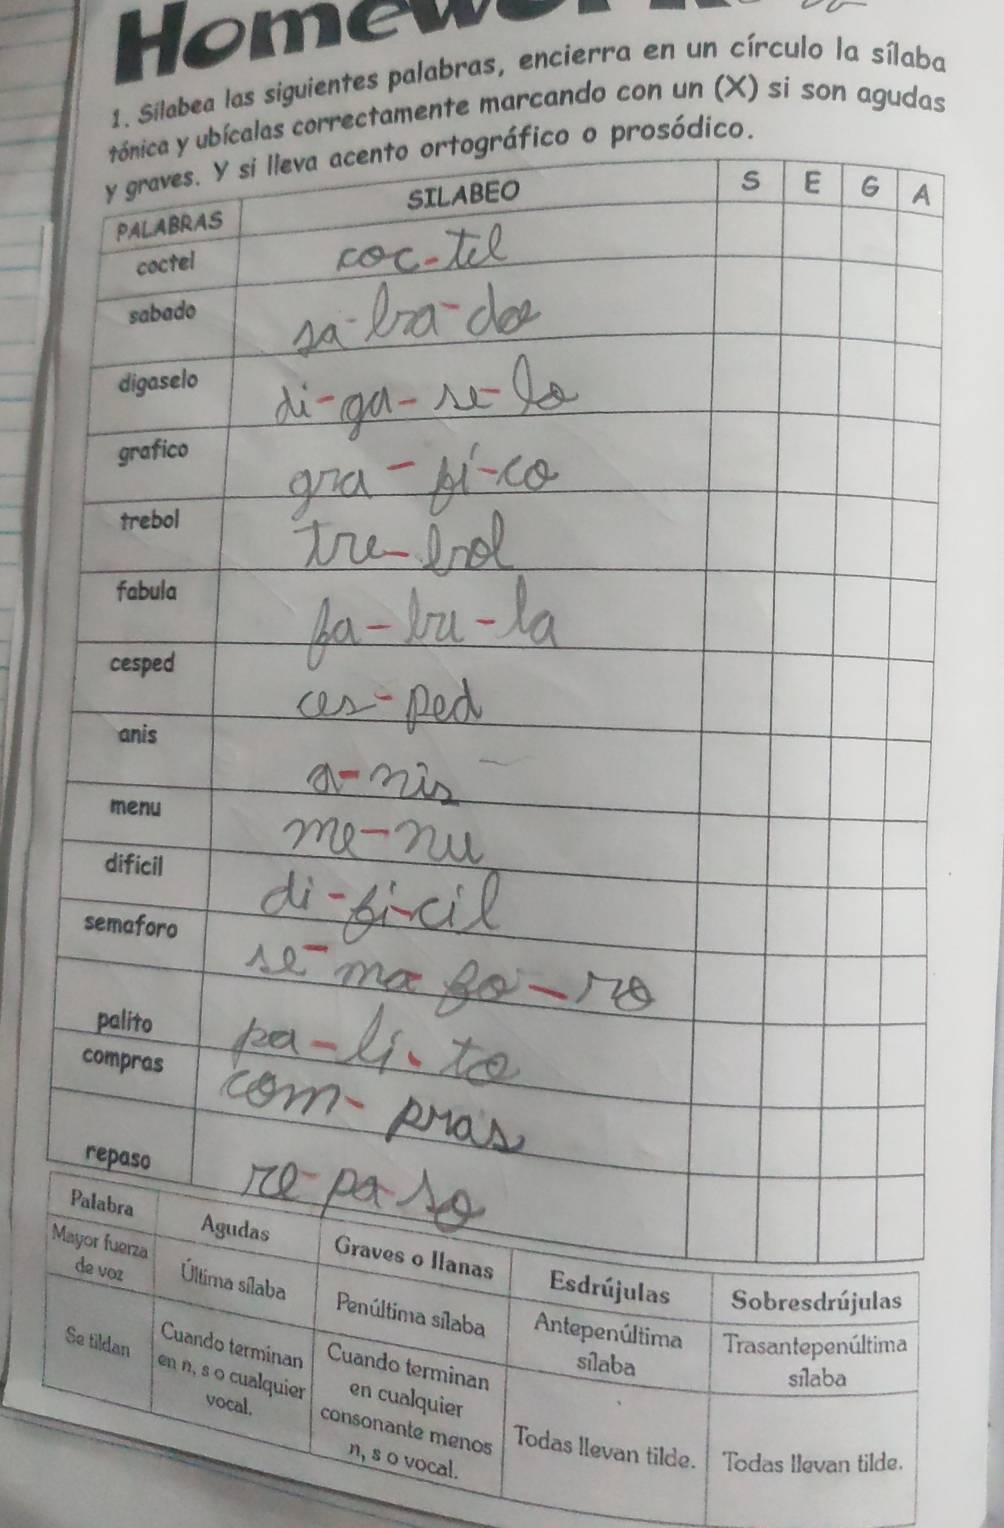 Homework
1. Silabea las siguientes palabras, encierra en un círculo la sílaba
tónica y ubícalas correctamente marcando con un (X) si son agudas
y graves. Y si lleva acento ortográfico o prosódico.
PALABRAS SILABEO S E G A
coctel coc-tel
sabado sa-ba-do
digaselo di-ga-se-lo
grafico gra-fi-co
trebol tre-bol
fabula fa-bu-la
cesped ces-ped
anis a-nis
menu me-nu
dificil di-fi-cil
semaforo se-ma fo-ro
palito pa-li-to
compras com-pras
repaso re-pa-so
Palabra Agudas Graves o llanas Esdrújulas Sobresdrújulas
Mayor fuerza
de voz Última sílaba Penúltima sílaba Antepenúltima
sílaba Trasantepenúltima
sílaba
Se tildan Cuando terminan
en n, s o cualquier
vocal. Cuando terminan
en cualquier
consonante menos
n, s o vocal. Todas llevan tilde. Todas llevan tilde.